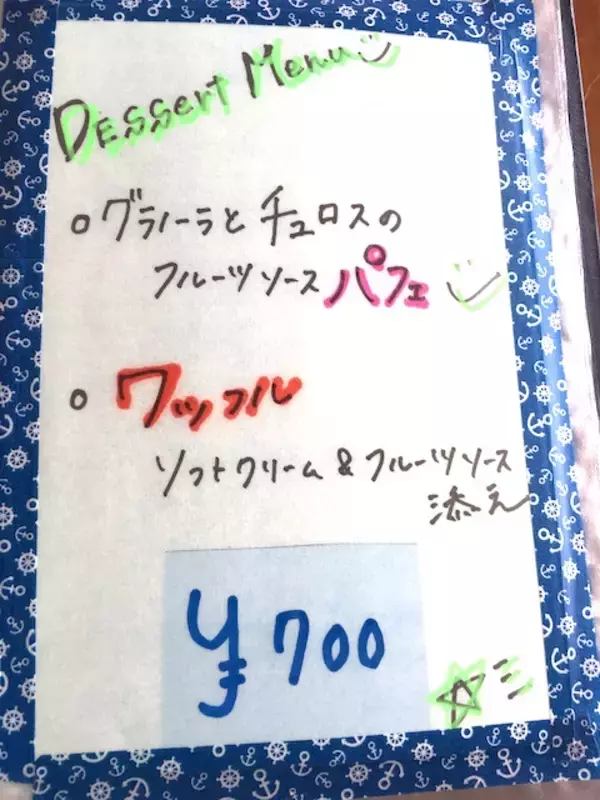 Dessert Menu
○ グラノーラとチュロスの
フルーツソース パフェ
○ ワッフル
ソフトクリーム & フルーツソース
添え
¥700